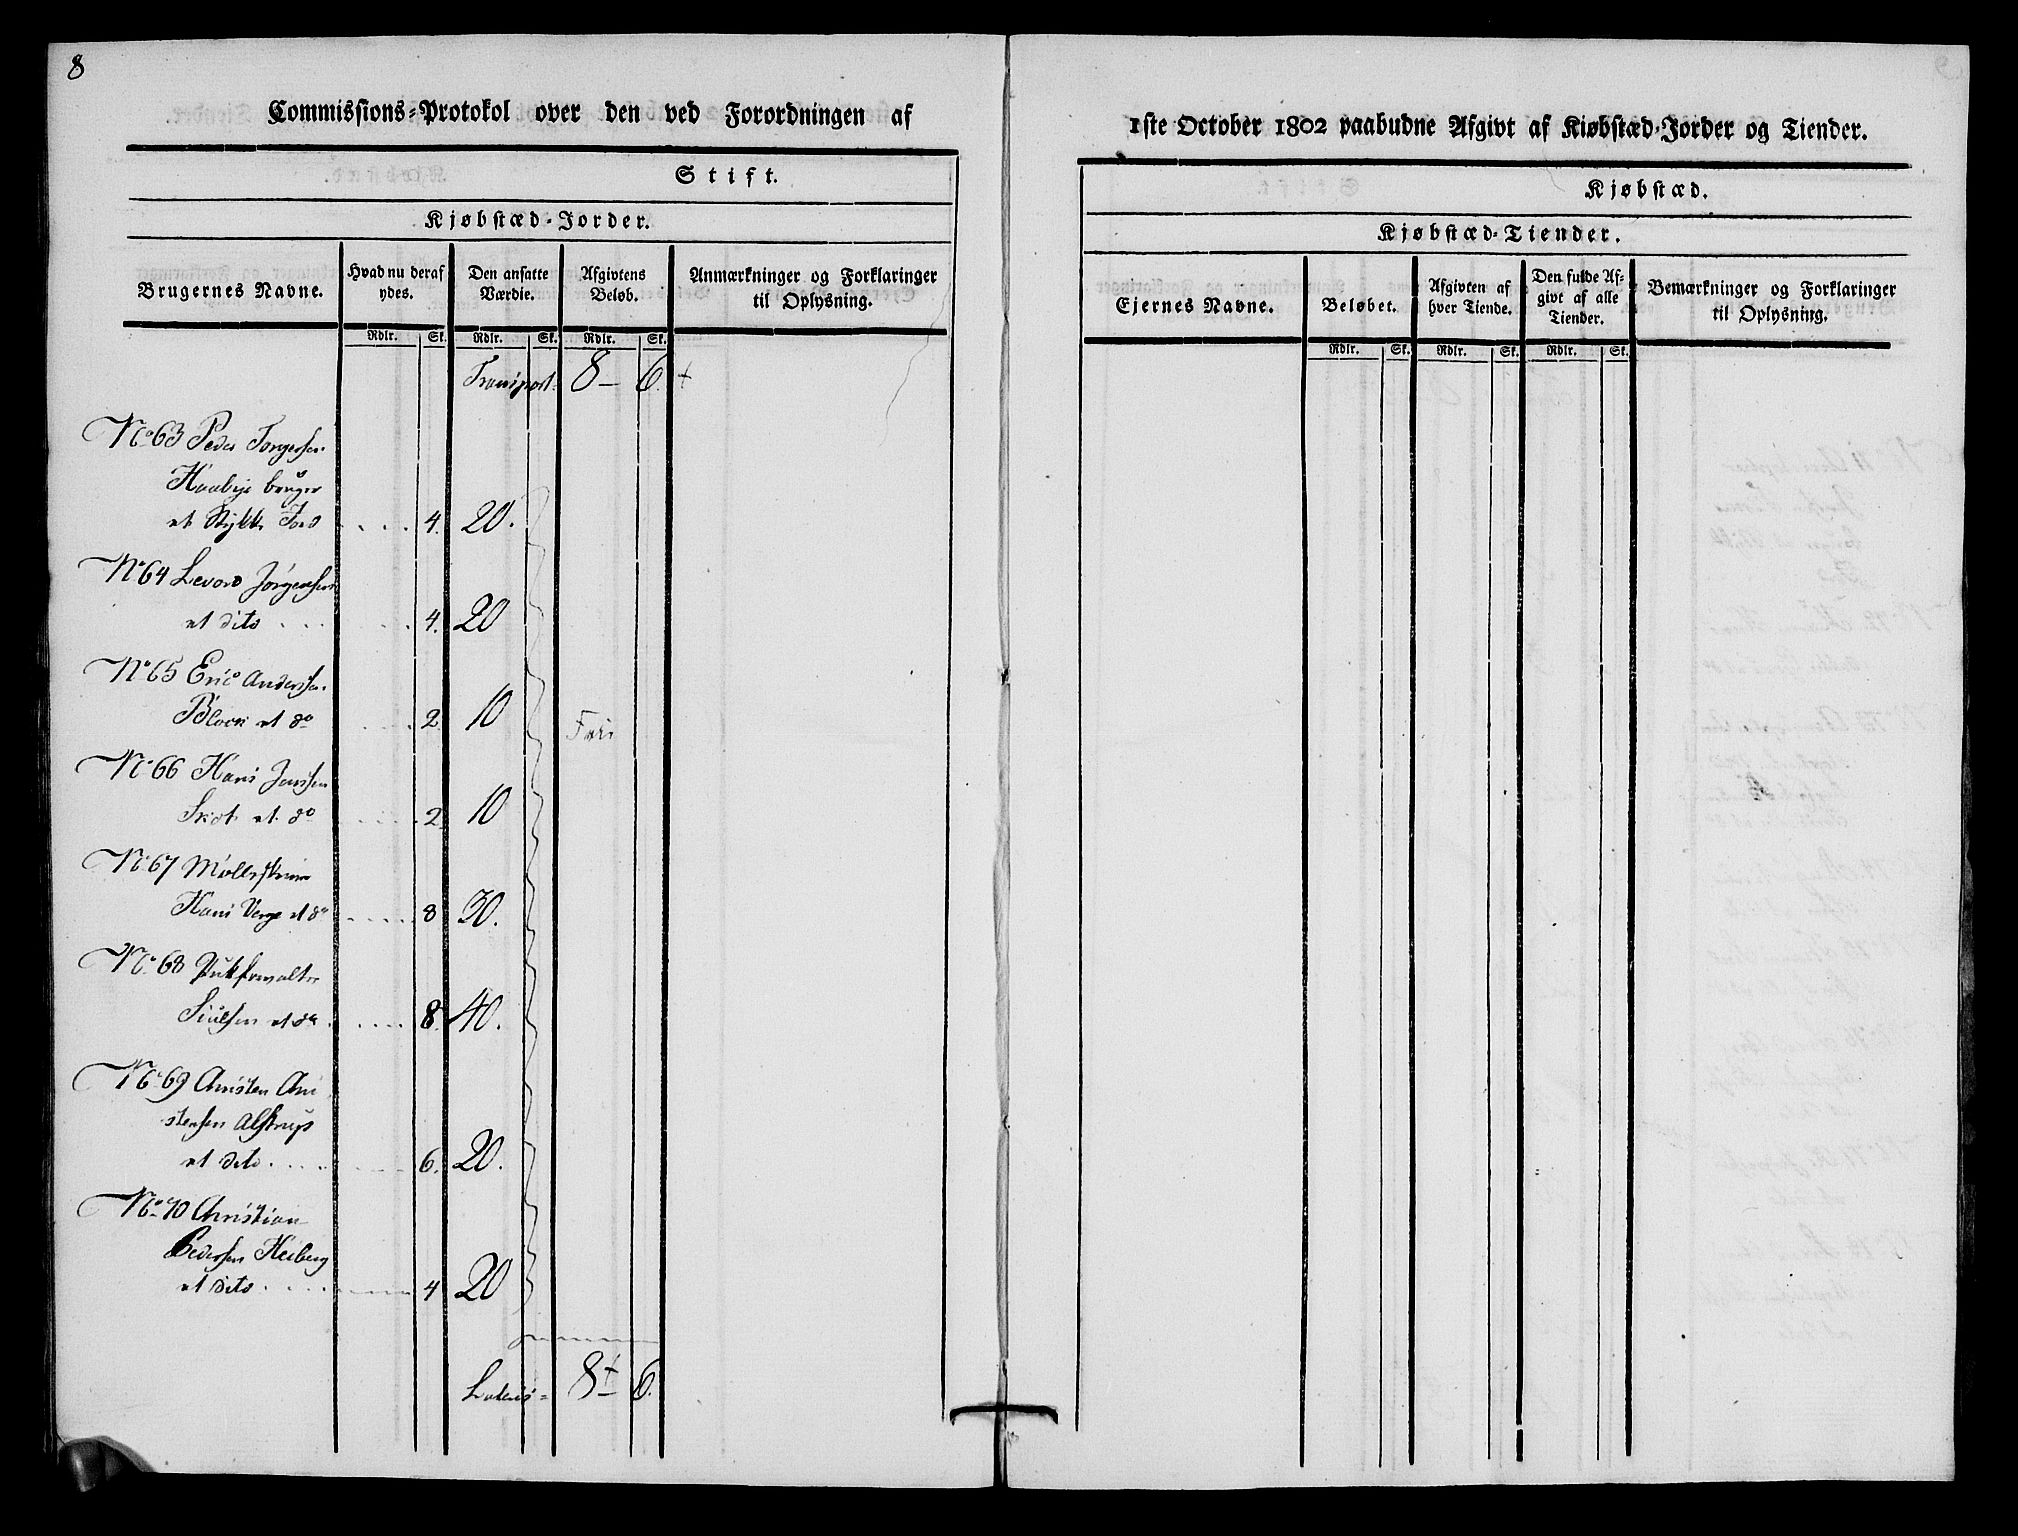 8
Commissions-Protokol over den ved Forordningen af
Stift.
Kjøbstæd-Jorder.
Brugernes Navne.
Hvad nu deraf ydes.
Den ansatte Værdie.
Afgivtens Beløb.
Anmærkninger og Forklaringer til Oplysning.
Rdlr. Sk. Rdlr. Sk. Rdlr. Sk.
Transport 8 - 6. +
No 63 Peder
bruger
et Stykke Jord . . . . 4. 20.
No 64 Jørgensen
et dito . . . . 4. 20
No 65 Eric Anderssen
et do . . . . 2 10 Fri
No 66 Hans Jenssen
et do . . . . 2 10
No 67
Hans et do . . . . 8 30.
No 68
et do . . . . 8. 40.
No 69 Christen Chri
stensen Alstrup
et dito . . . . 6. 20.
No 70 Christian
Pedersen Heiberg
et dito . . . . 4 20
Lateris = 8 - 6.
1ste October 1802 paabudne Afgivt af Kiøbstæd-Jorder og Tiender.
Kjøbstæd.
Kjøbstæd-Tiender.
Ejernes Navne.
Beløbet.
Afgivten af hver Tiende.
Den fulde Afgivt af alle Tiender.
Bemærkninger og Forklaringer til Oplysning.
Rdlr. Sk. Rdlr. Sk. Rdlr. Sk.